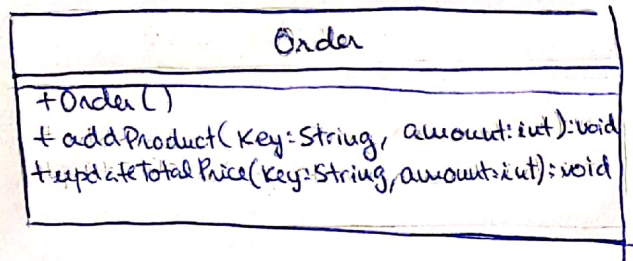 Order
+Order()
+ addProduct(Key:String, amount:int):void
+updateTotalPrice(Key:String,amount:int):void